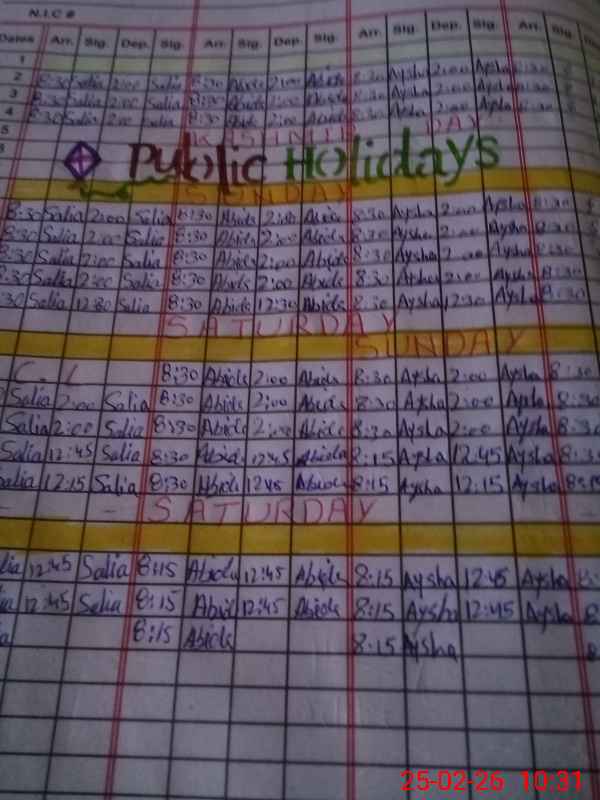 N.I.C #
Dates Arr. Sig. Dep. Sig. Arr. Sig. Dep. Sig. Arr. Sig. Dep. Sig. Arr. Sig.
1
2 8:30 Salia 2:00 Salia 8:30 Abids 2:00 Abids 8:30 Aysha 2:00 Aysha 8:30
3 8:30 Salia 2:00 Salia 8:30 Abids 2:00 Abids 8:30 Aysha 2:00 Aysha 8:30
4 8:30 Salia 2:00 Salia 8:30 Abids 2:00 8:30 2:00 Aysha 8:30
5 DAY
Public Holidays
SUNDAY
8:30 Salia 2:00 Salia 8:30 Abids 2:00 Abids 8:30 Aysha 2:00 Aysha 8:30
8:30 Salia 2:00 Salia 8:30 Abids 2:00 Abids 8:30 Aysha 2:00 Aysha 8:30
8:30 Salia 2:00 Salia 8:30 Abids 2:00 Abids 8:30 Aysha 2:00 Aysha 8:30
8:30 Salia 2:00 Salia 8:30 Abids 2:00 Abids 8:30 Aysha 2:00 Aysha 8:30
30 Salia 12:30 Salia 8:30 Abids 12:30 Abids 8:30 Aysha 12:30 Aysha 8:30
SATURDAY
SUNDAY
C. L 8:30 Abids 2:00 Abids 8:30 Aysha 2:00 Aysha 8:30
Salia 2:00 Salia 8:30 Abids 2:00 Abids 8:30 Aysha 2:00 Aysha 8:30
Salia 2:00 Salia 8:30 Abids 2:00 Abids 8:30 Aysha 2:00 Aysha 8:30
Salia 12:45 Salia 8:30 Abids 12:45 Abids 8:15 Aysha 12:45 Aysha 8:3
Salia 12:15 Salia 8:30 Abids 12:45 Abids 8:15 Aysha 12:15 Aysha
SATURDAY
lia 12:45 Salia 8:15 Abids 12:45 Abids 8:15 Aysha 12:45 Aysha 8:
12:45 Salia 8:15 Abids 12:45 Abids 8:15 Aysha 12:45 Aysha 8:
8:15 Abids 8:15 Aysha 8
25-02-26 10:31